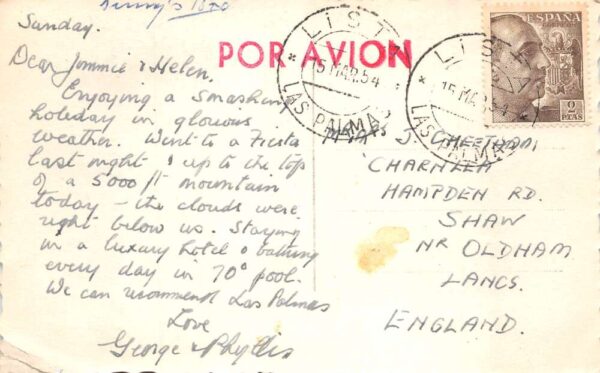 Sunday.
Dear Jimmie & Helen.
Enjoying a smashing
holiday in glorious
weather. Went to a Fiesta
last night & up to the top
of a 5000 ft mountain
today – the clouds were
right below us. Staying
in a luxury hotel & bathing
every day in 70° pool.
We can recommend Las Palmas
Love
George & Phyllis
POR AVION
LISTA
15 MAR. 54
LAS PALMAS
LISTA
15 MAR. 54
LAS PALMAS
ESPAÑA
2
PTAS
J. CHEETHAM
CHARNLEA
HAMPDEN RD.
SHAW
NR OLDHAM
LANCS.
ENGLAND.